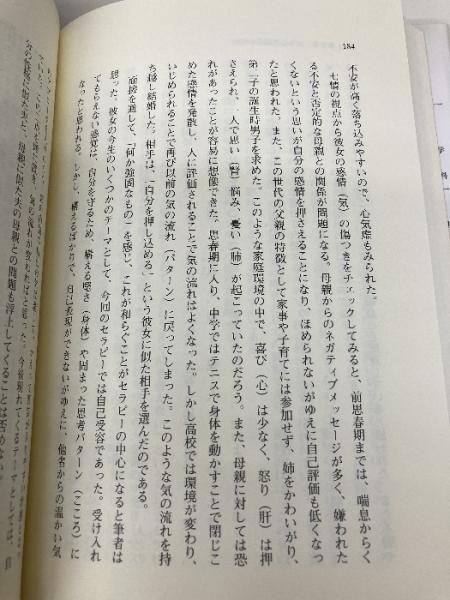 184
不安が高く落ち込みやすいので、心気虚もみられた。
七情の視点から彼女の感情（気）の傷つきをチェックしてみると、前思春期までは、喘息からく
る不安と否定的な母親との関係が問題になる。母親からのネガティブメッセージが多く、嫌われた
くないという思いが自分の感情を押さえることになり、ほめられないがゆえに自己評価も低くなっ
たと思われた。また、この世代の父親の特徴として家事や子育てには参加せず、姉をかわいがり、
第二子の誕生時男子を求めた。このような家庭環境の中で、喜び（心）は少なく、怒り（肝）は押
さえられ、人で思い
悩み、憂い（肺）が起こっていたのだろう。また、母親に対しては恐
れがあったことが容易に想像できた。思春期に入り、中学ではテニスで身体を動かすことで閉じこ
めた感情を発散し、人に評価されることで気の流れはよくなった。しかし高校では環境が変わり、
いじめられることで再び以前の気の流れ（パターン）に戻ってしまった。このような気の流れを持
ち越し結婚した。相手は、「自分を押し込める」という彼女に似た相手を選んだのである。
面接を通して、「何か強固なもの」を感じ、これが和らぐことがセラピーの中心になると筆者は
思った。彼女の今生のいくつかのテーマとして、今回のセラピーでは自己受容であった。受け入れ
てもらえない感覚は、自分を守るため、構える堅さ（身体）や固まった思考パターン（こころ）に
なったと思われる。しかし、構えるばかりで、自己表現ができないがゆえに、他者からの温かい気
分の性格に似た夫の母親との問題も浮上してくることは否めない
学
科